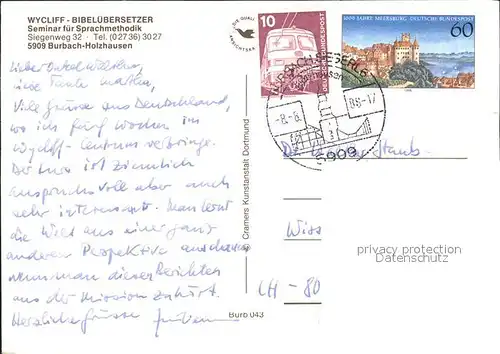 WYCLIFF - BIBELÜBERSETZER
Seminar für Sprachmethodik
Siegenweg 32 · Tel. (0 27 36) 30 27
5909 Burbach-Holzhausen
Lieber Onkel
liebe Tante Martha,
Viele Grüsse aus Deutschland,
wo ich fünf Wochen im
Wycliff-Centrum verbringe.
Der Kurs ist ziemlich
anspruchsvoll aber auch
sehr interessant. Man lernt
die Welt aus einer ganz
anderen Perspektive anschauen
wenn man diesen Berichten
aus der Mission zuhört.
Herzliche Grüsse
© Cramers Kunstanstalt Dortmund
Burb 043
DIE
ANSICHTSKARTE
10
DEUTSCHE BUNDESPOST
1000 JAHRE MEERSBURG DEUTSCHE BUNDESPOST
60
BURBACH, SIEGERL
Holzhausen
-8.-8.
88-17
5909
Staub
Wiss
CH - 80
privacy protection
Datenschutz